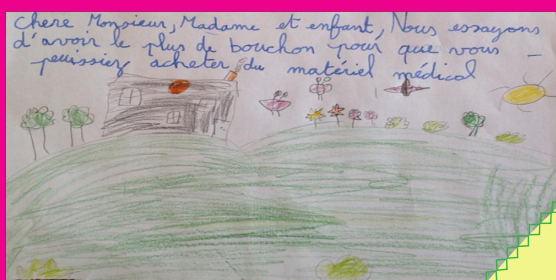 Chere Monsieur, Madame et enfant, Nous essayons
d'avoir le plus de bouchon pour que vous _
peuissiez acheter du matériel médical